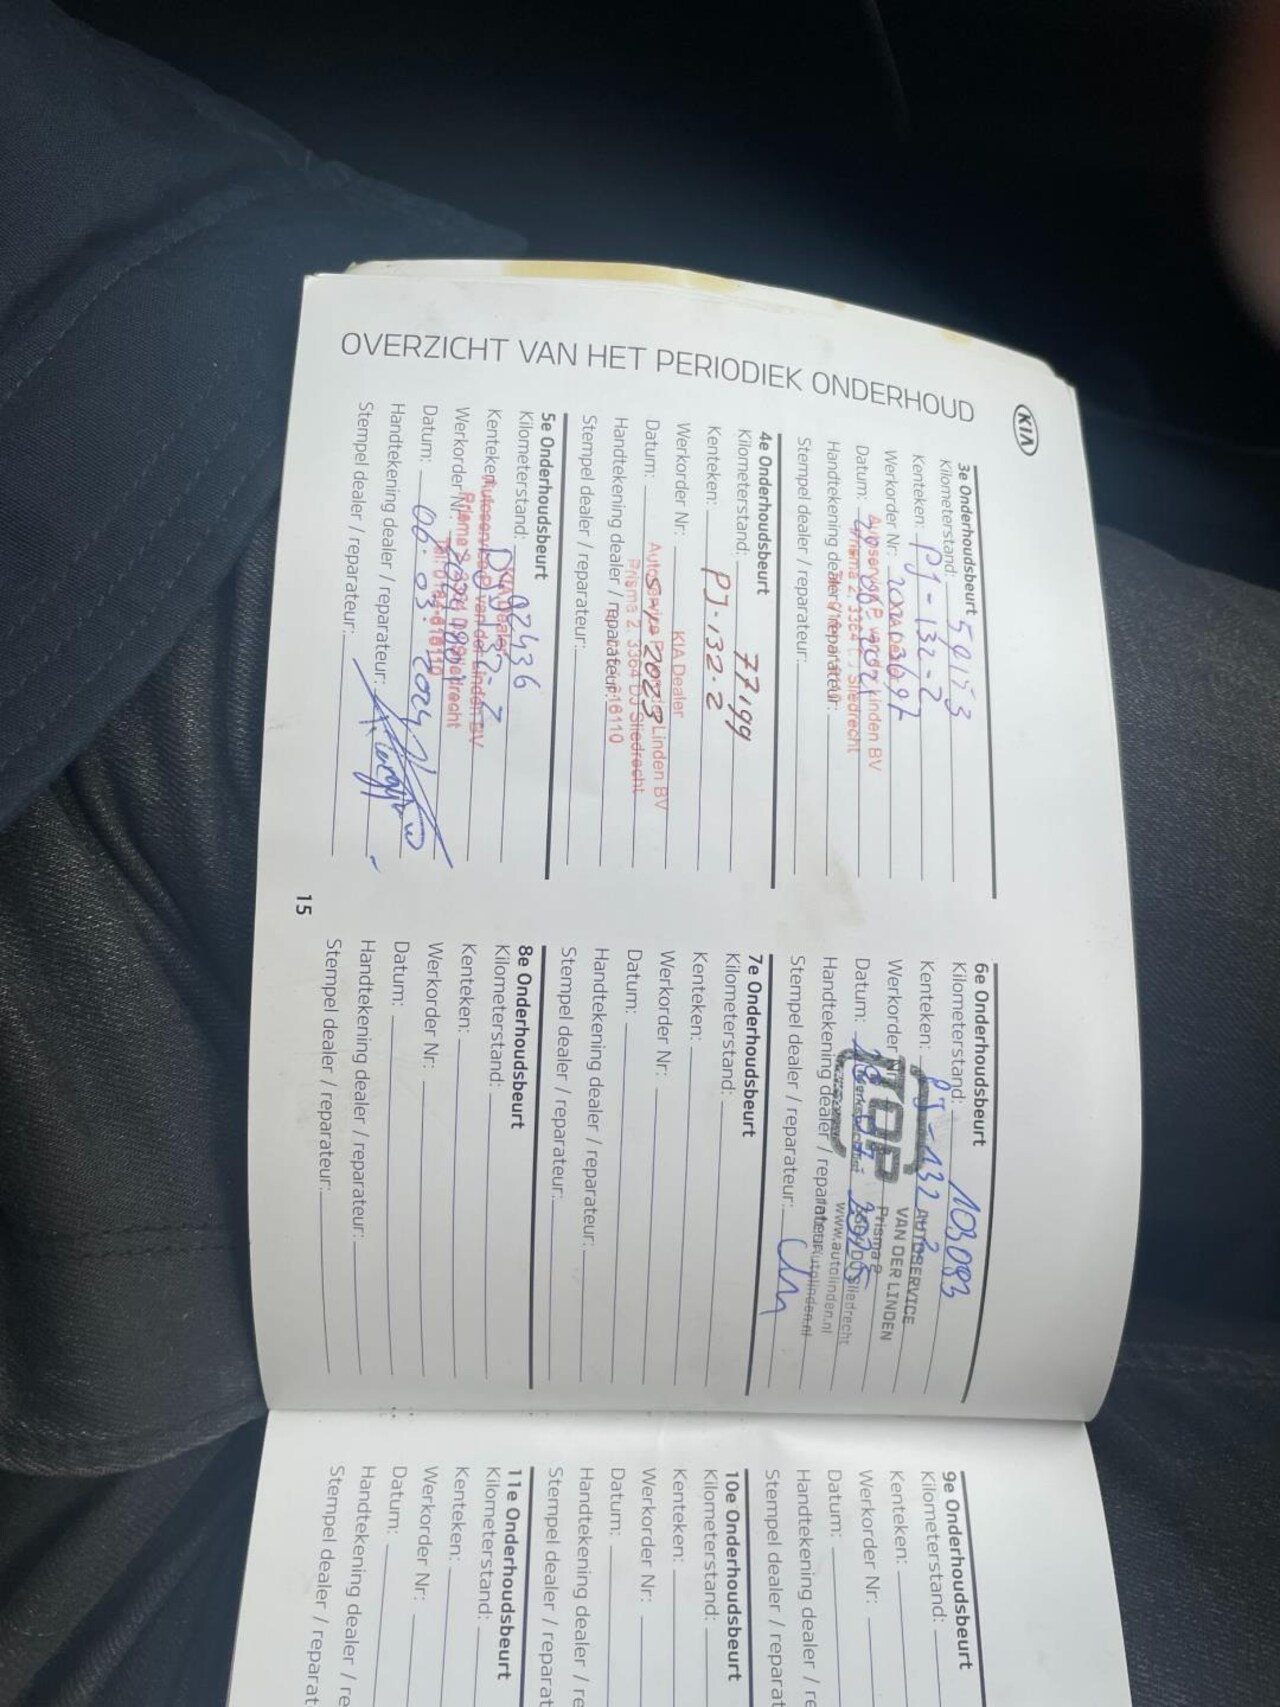 KIA
OVERZICHT VAN HET PERIODIEK ONDERHOUD
3e Onderhoudsbeurt
Kilometerstand: 59153
Kenteken: PJ-132-2
Werkorder Nr:
Datum:
Handtekening dealer / reparateur:
Stempel dealer / reparateur:
Autoservice P. van der Linden BV
Prisma 2, 3364 DJ Sliedrecht
4e Onderhoudsbeurt
Kilometerstand: 77199
Kenteken: PJ-132-2
Werkorder Nr:
KIA Dealer
Datum: 2023
Autoservice P. van der Linden BV
Prisma 2, 3364 DJ Sliedrecht
Handtekening dealer / reparateur:
Stempel dealer / reparateur:
5e Onderhoudsbeurt
Kilometerstand: 92436
KIA Dealer
Kenteken:
Autoservice P. van der Linden BV
Werkorder Nr:
Prisma 2, 3364 DJ Sliedrecht
Datum: 06-03-2024
Tel: 0184-616110
Handtekening dealer / reparateur:
Stempel dealer / reparateur:
15
6e Onderhoudsbeurt
Kilometerstand: 103093
Kenteken: PJ-132-2
Werkorder Nr:
Datum: 2025
Handtekening dealer / reparateur:
Stempel dealer / reparateur:
TOP
AUTOSERVICE
VAN DER LINDEN
Prisma 2
Sliedrecht
www.autolinden.nl
7e Onderhoudsbeurt
Kilometerstand:
Kenteken:
Werkorder Nr:
Datum:
Handtekening dealer / reparateur:
Stempel dealer / reparateur:
8e Onderhoudsbeurt
Kilometerstand:
Kenteken:
Werkorder Nr:
Datum:
Handtekening dealer / reparateur:
Stempel dealer / reparateur:
9e Onderhoudsbeurt
Kilometerstand:
Kenteken:
Werkorder Nr:
Datum:
Handtekening dealer / re
Stempel dealer / reparat
10e Onderhoudsbeurt
Kilometerstand:
Kenteken:
Werkorder Nr:
Datum:
Handtekening dealer / re
Stempel dealer / reparat
11e Onderhoudsbeurt
Kilometerstand:
Kenteken:
Werkorder Nr:
Datum:
Handtekening dealer / re
Stempel dealer / reparat